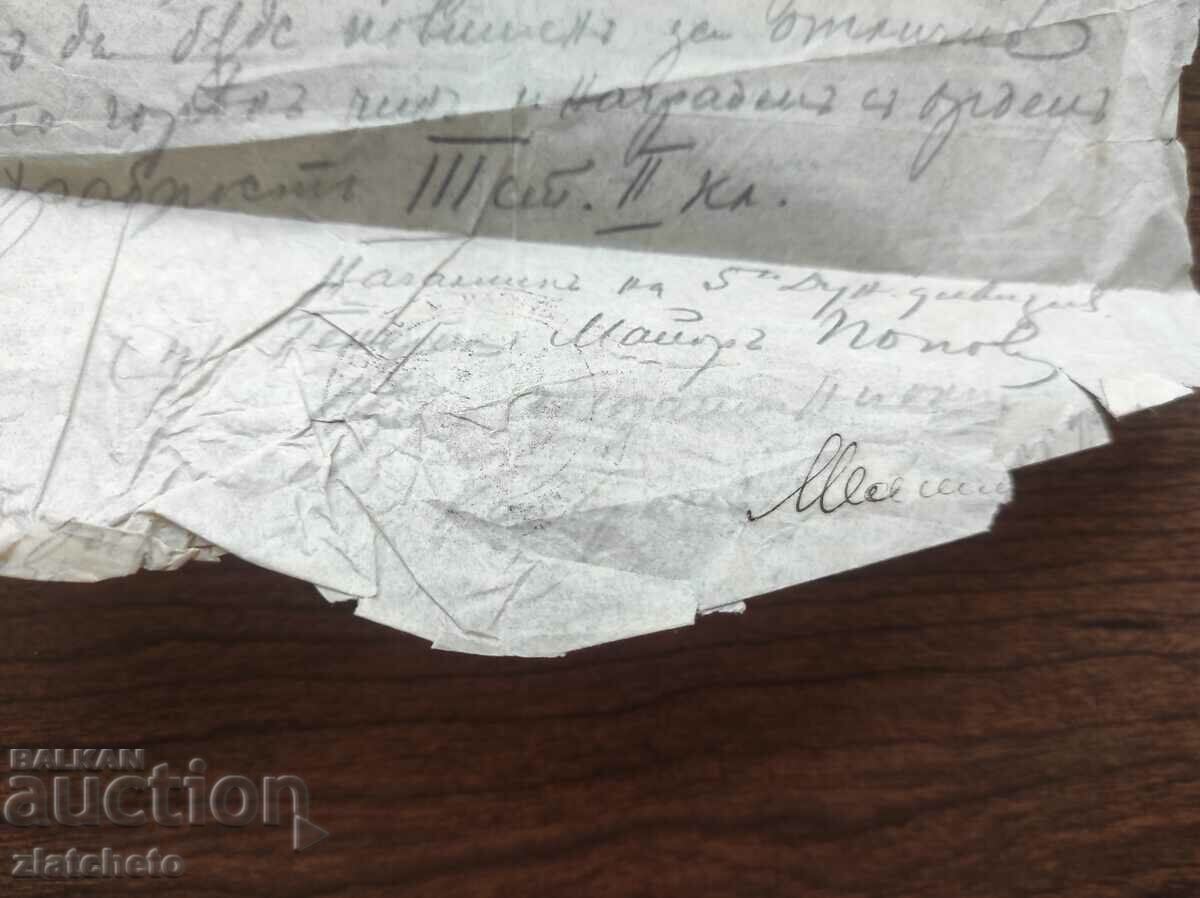 да бѫде повишенъ за отлично
по горенъ чинъ и награденъ съ орденъ
храбрость III ст. II кл.
Началникъ на 5а Дун. дивизия
Майоръ Поповъ
BALKAN
auction
zlatcheto